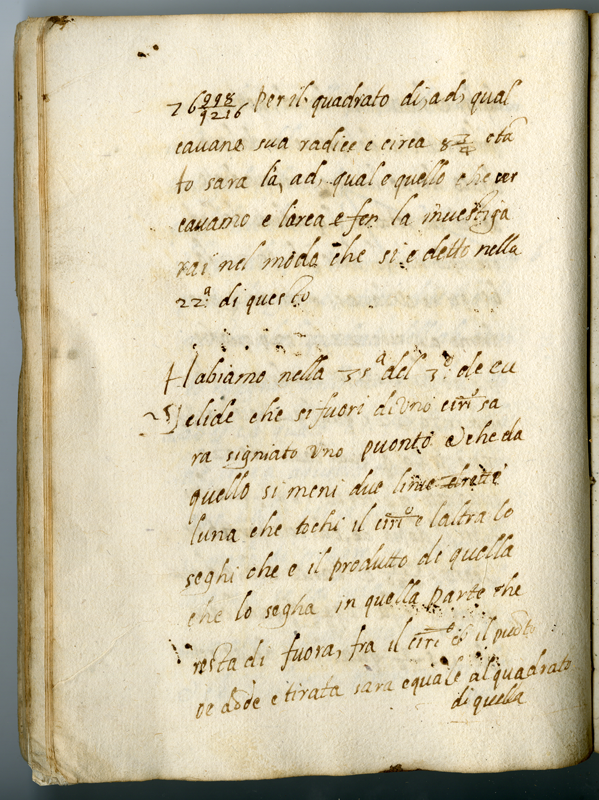 76 998/9216 per il quadrato di, ad, qual
cavane sua radice e circa 8 e ta
to sara la, ad, qual e quello che cer
cavamo e larea e fon la investiga
rai nel modo che si e detto nella
22.ª di questo
Habiamo nella 35ª del 3.º de eu
25 clide che si fuori di uno circ.º sa
ra signiato uno puonto e che da
quello si meni due linie drette
luna che tochi il circ.º e laltra lo
seghi che e il produtto di quella
che lo segha in quella parte che
resta di fuora, fra il circ.º e il puonto
ve adde e tirata sara equale al quadrato
di quella